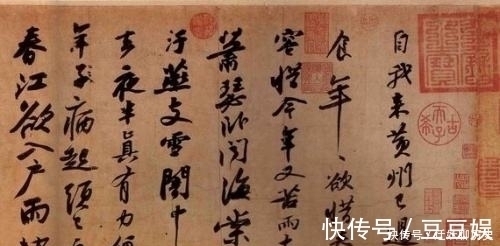 自我来黄州已
食年〻欲惜
容惜今年又苦雨
蕭瑟卧聞海棠
汙燕支雪闇中
去夜半真有力何
年子病起須已
春江欲入戶雨勢
古希天子
快传号/豆豆娱